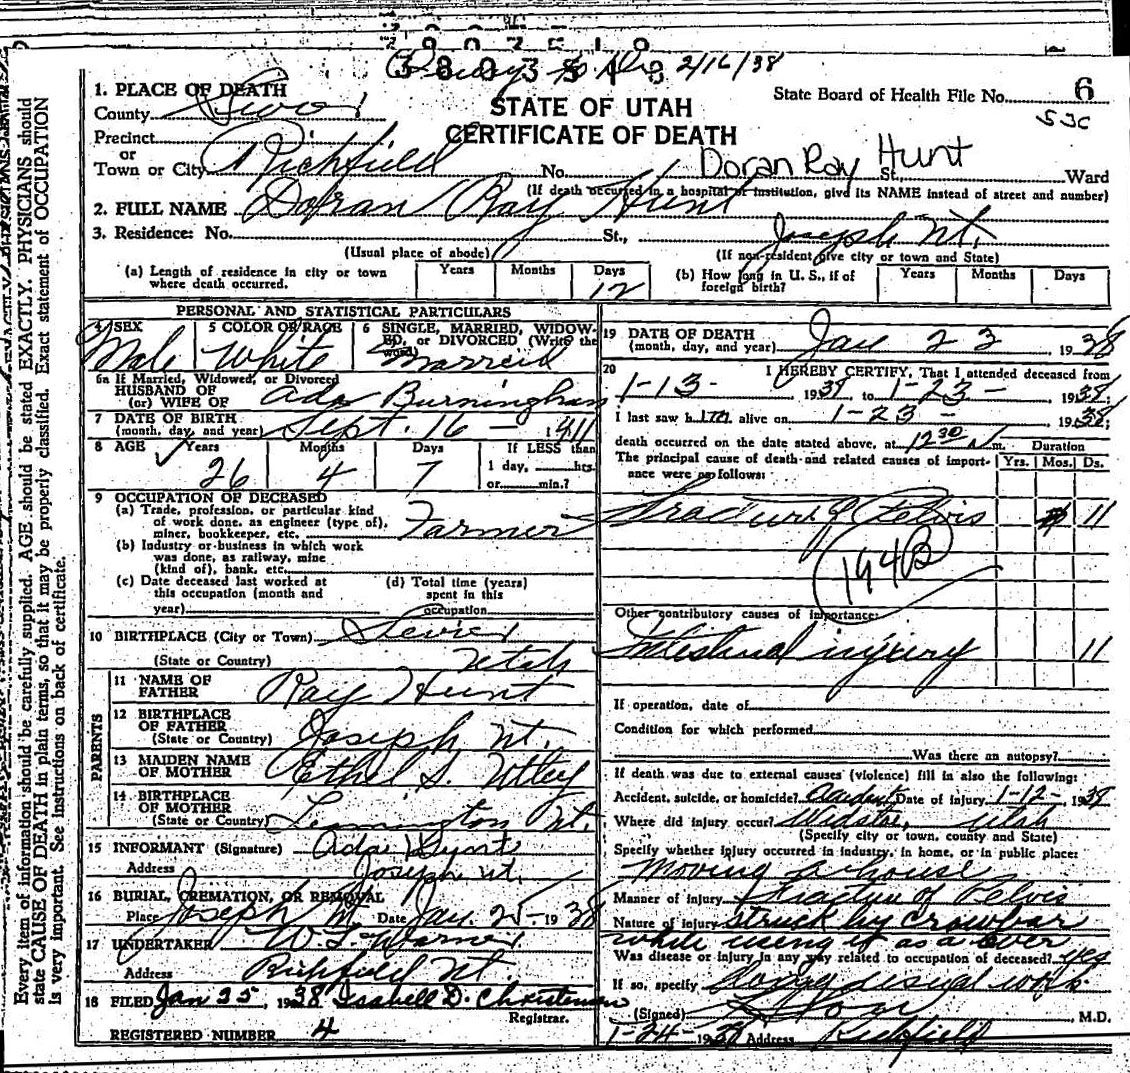 3803548
2/16/38
1. PLACE OF DEATH
County Sevier
STATE OF UTAH
CERTIFICATE OF DEATH
State Board of Health File No. 6
53C
Precinct
or
Town or City Richfield No. Doran Ray Hunt St., Ward
(If death occurred in a hospital or institution, give its NAME instead of street and number)
2. FULL NAME Doran Ray Hunt
3. Residence: No. St., Joseph Ut.
(Usual place of abode) (If non-resident give city or town and State)
(a) Length of residence in city or town where death occurred. Years Months Days 12
(b) How long in U. S., if of foreign birth? Years Months Days
PERSONAL AND STATISTICAL PARTICULARS
4 SEX Male
5 COLOR OR RACE White
6 SINGLE, MARRIED, WIDOWED, or DIVORCED (Write the word) Married
6a If Married, Widowed, or Divorced
HUSBAND OF
(or) WIFE OF Ada Burningham
7 DATE OF BIRTH
(month, day, and year) Sept. 16 1911
8 AGE Years 26 Months 4 Days 7 If LESS than 1 day, hrs. or min.?
9 OCCUPATION OF DECEASED
(a) Trade, profession, or particular kind of work done, as engineer (type of), miner, bookkeeper, etc. Farmer
(b) Industry or business in which work was done, as railway, mine (kind of), bank, etc.
(c) Date deceased last worked at this occupation (month and year)
(d) Total time (years) spent in this occupation
10 BIRTHPLACE (City or Town) Sevier
(State or Country) Utah
PARENTS
11 NAME OF FATHER Ray Hunt
12 BIRTHPLACE OF FATHER
(State or Country) Joseph Ut.
13 MAIDEN NAME OF MOTHER Ethel S. Utley
14 BIRTHPLACE OF MOTHER
(State or Country) Leamington Ut.
15 INFORMANT (Signature) Ada
Address Joseph Ut.
16 BURIAL, CREMATION, OR REMOVAL
Place Joseph Ut Date Jan. 25 - 1938
17 UNDERTAKER W. L. Warner
Address Richfield Ut.
18 FILED Jan 25, 1938 Isabell D. Christensen
Registrar.
REGISTERED NUMBER 4
19 DATE OF DEATH
(month, day, and year) Jan 23 1938
20 I HEREBY CERTIFY, That I attended deceased from
1-13- 1938 to 1-23- 1938;
I last saw him alive on 1-23- 1938;
death occurred on the date stated above, at 12 30 m.
The principal cause of death and related causes of importance were as follows: Duration Yrs. Mos. Ds.
Fracture of Pelvis 11
194B
Other contributory causes of importance:
Intestinal injury 11
If operation, date of
Condition for which performed
Was there an autopsy?
If death was due to external causes (violence) fill in also the following:
Accident, suicide, or homicide? Accident Date of injury 1-12-, 1938
Where did injury occur? Utah
(Specify city or town, county and State)
Specify whether injury occurred in industry, in home, or in public place:
Moving a house
Manner of injury Fracture of Pelvis
Nature of injury struck by crowbar
while using it as a lever
Was disease or injury in any way related to occupation of deceased? yes
If so, specify doing usual work
(Signed) M.D.
1-24-1938 Address Richfield
Every item of information should be carefully supplied. AGE should be stated EXACTLY. PHYSICIANS should
state CAUSE OF DEATH in plain terms, so that it may be properly classified. Exact statement of OCCUPATION
is very important. See instructions on back of certificate.